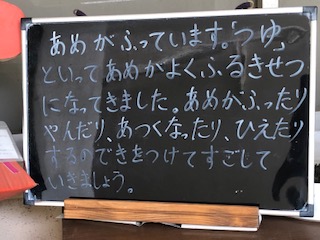 あめがふっています。「つゆ」
といってあめがよくふるきせつ
になってきました。あめがふったり
やんだり、あつくなったり、ひえたり
するのできをつけてすごして
いきましょう。